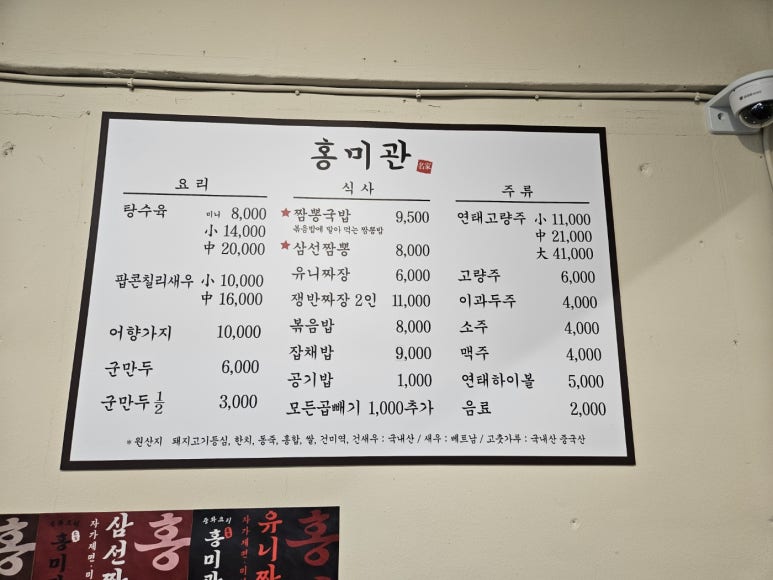 홍미관
名家
요리
탕수육 미니 8,000
小 14,000
中 20,000
팝콘칠리새우 小 10,000
中 16,000
어향가지 10,000
군만두 6,000
군만두 1/2 3,000
식사
★짬뽕국밥 9,500
볶음밥에 말아 먹는 짬뽕밥
★삼선짬뽕 8,000
유니짜장 6,000
쟁반짜장 2인 11,000
볶음밥 8,000
잡채밥 9,000
공기밥 1,000
모든곱빼기 1,000추가
주류
연태고량주 小 11,000
中 21,000
大 41,000
고량주 6,000
이과두주 4,000
소주 4,000
맥주 4,000
연태하이볼 5,000
음료 2,000
*원산지 돼지고기등심, 한치, 동죽, 홍합, 쌀, 건미역, 건새우 : 국내산 / 새우 : 베트남 / 고춧가루 : 국내산 중국산
홍
중화요리
홍미관
자가제면·미
삼선짬
홍
중화요리
홍미관
자가제면·미
유니짜
홍